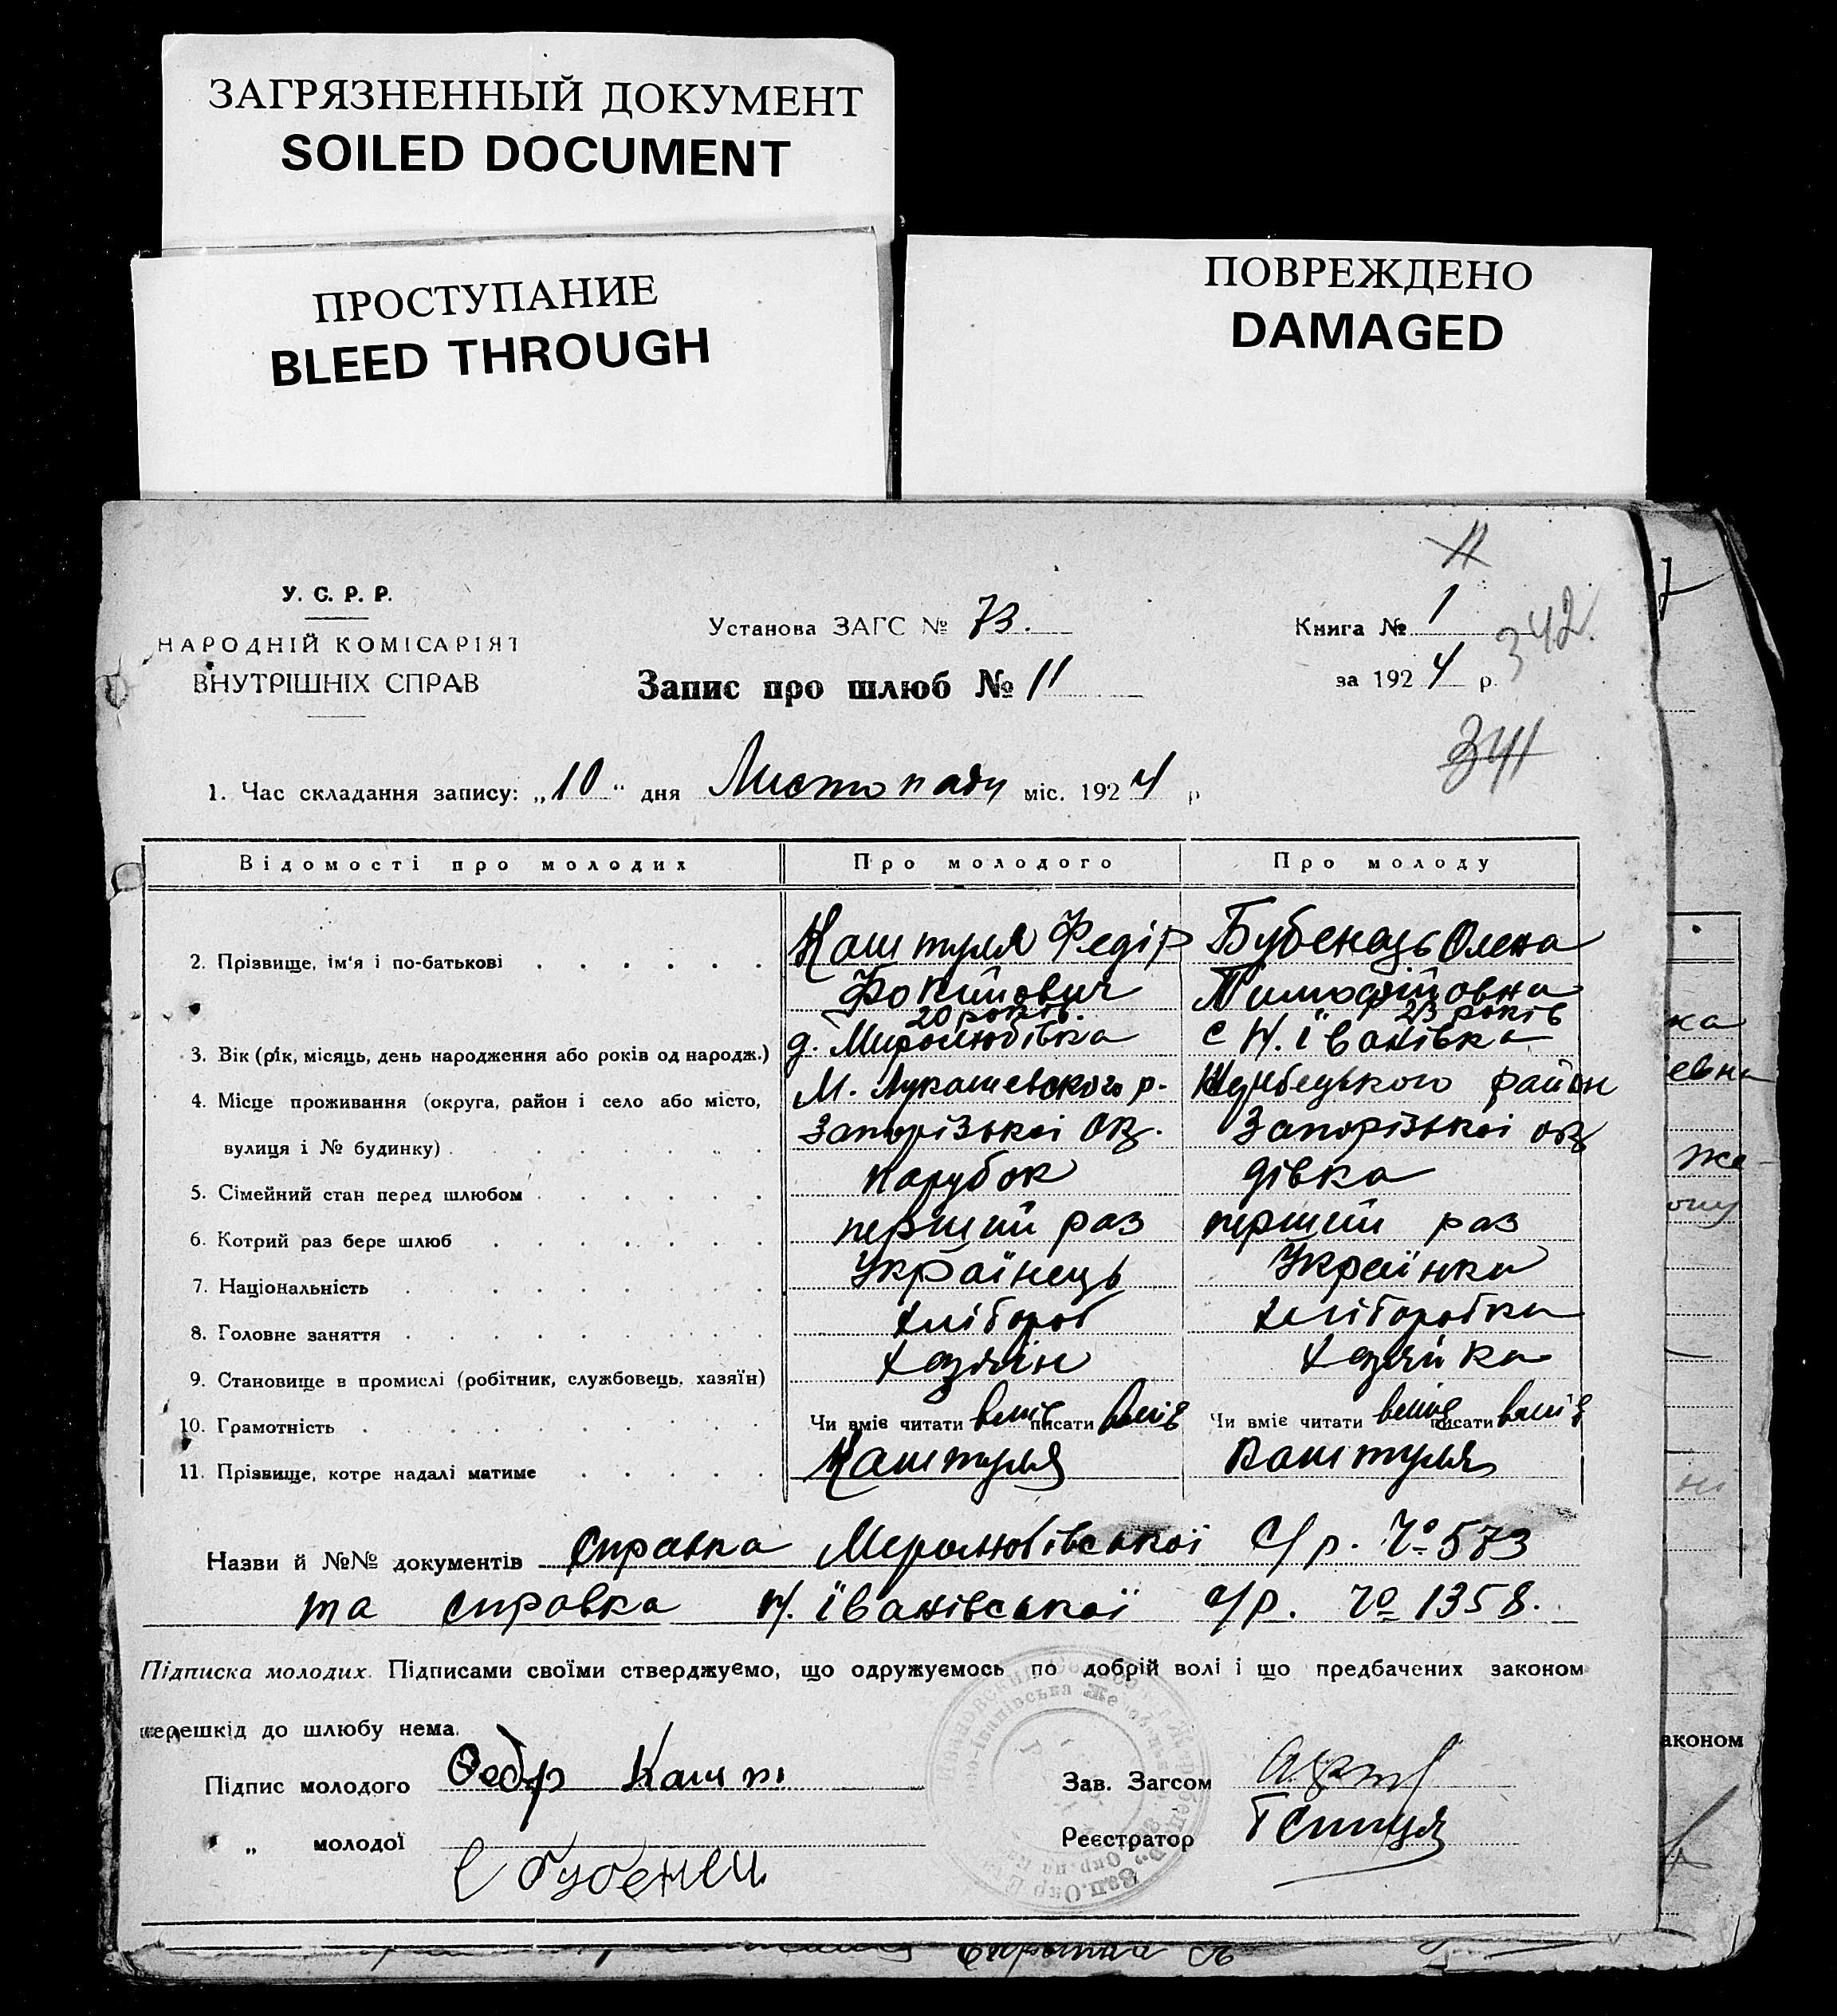 ЗАГРЯЗНЕННЫЙ ДОКУМЕНТ
SOILED DOCUMENT
ПРОСТУПАНИЕ
BLEED THROUGH
ПОВРЕЖДЕНО
DAMAGED
У. С. Р. Р.
НАРОДНІЙ КОМІСАРІЯТ
ВНУТРІШНІХ СПРАВ
Установа ЗАГС № 73.
Запис про шлюб № 11
Книга № 1
за 1924 р.
342.
341
1. Час складання запису: „10" дня Листопаду міс. 1924 р
Відомості про молодих Про молодого Про молоду
2. Прізвище, ім'я і по-батькові Каштуля Федір Бубенець Олена
Фокійович Тимофійовна
20 років. 23 років
3. Вік (рік, місяць, день народження або років од народж.) д. Миролюбівка с Н. Іванівка
4. Місце проживання (округа, район і село або місто, М. Лукашевского р. район
вулиця і № будинку) Запорізької Окр. Запорізької окр
5. Сімейний стан перед шлюбом парубок дівка
6. Котрий раз бере шлюб перший раз перший раз
7. Національність Українець Українка
8. Головне заняття хлібороб хліборобка
9. Становище в промислі (робітник, службовець, хазяїн) хазяїн хазяйка
10. Грамотність Чи вміє читати вміє писати вміє Чи вміє читати вміє писати вміє
11. Прізвище, котре надалі матиме Каштуля Каштуля
Назви й №№ документів Справка Меролюбівської С/р. № 573
та справка Н. Іванівської с/р. № 1358.
Підписка молодих. Підписами своїми стверджуємо, що одружуємось по добрій волі і що предбачених законом
перешкід до шлюбу нема.
Підпис молодого Федір Кашт
Зав. Загсом
„ молодої
Реєстратор
Бубенец
аконом